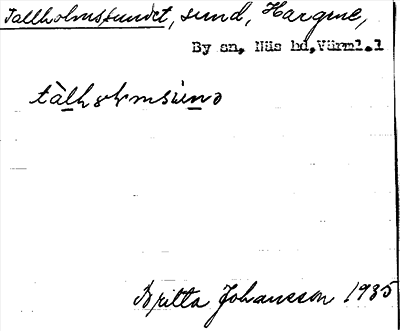 Tallholmssundet, sund, Hargene,
By sn, Näs hd, Värml.l
tàlhɷlmsùnd
Britta Johansson 1935